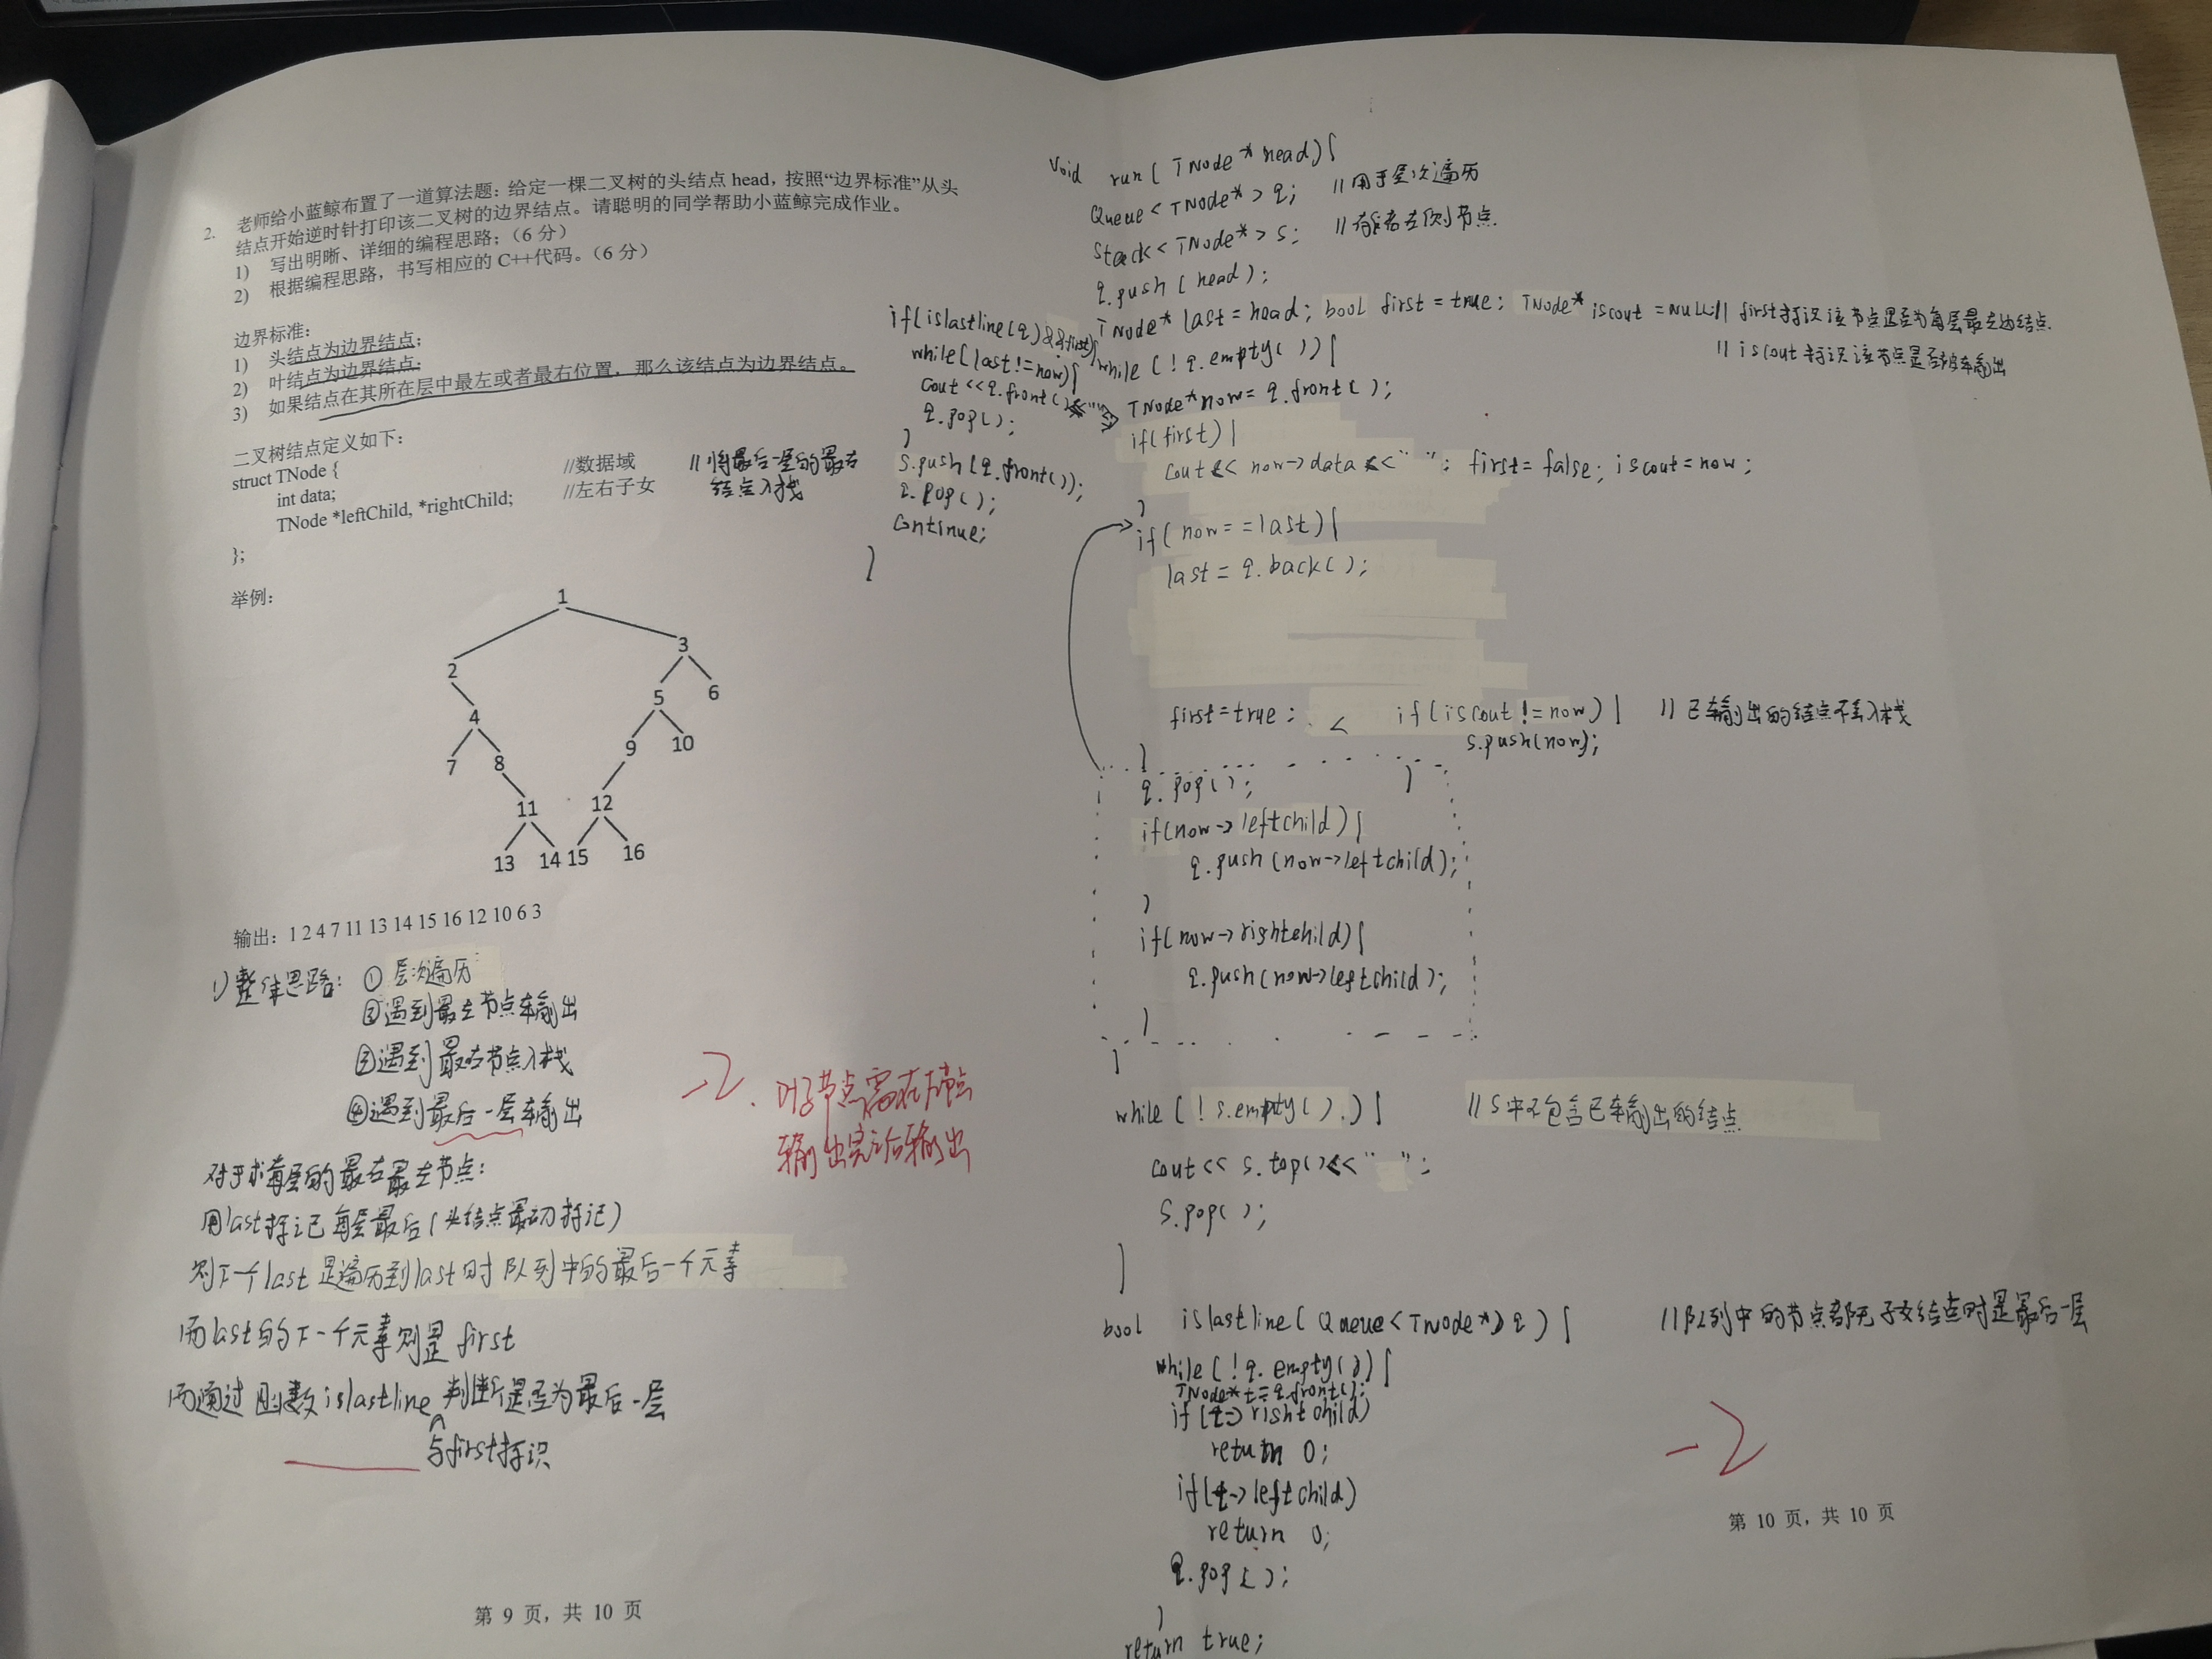 2. 老师给小蓝鲸布置了一道算法题：给定一棵二叉树的头结点 head，按照“边界标准”从头
结点开始逆时针打印该二叉树的边界结点。请聪明的同学帮助小蓝鲸完成作业。
1) 写出明晰、详细的编程思路；（6 分）
2) 根据编程思路，书写相应的 C++代码。（6 分）
边界标准：
1) 头结点为边界结点；
2) 叶结点为边界结点；
3) 如果结点在其所在层中最左或者最右位置，那么该结点为边界结点。
二叉树结点定义如下：
struct TNode {
int data; //数据域
TNode *leftChild, *rightChild; //左右子女
};
举例：
1
3
2
5 6
4
9 10
7 8
11 12
13 14 15 16
输出：1 2 4 7 11 13 14 15 16 12 10 6 3
1) 整体思路：① 层次遍历
②遇到最左节点输出
③遇到最右节点入栈
④遇到最后一层输出
-2. 叶子节点需在左节点
输出完之后输出
对于求每层的最右最左节点：
用last标记每层最后(头结点最初标记)
则下一个last是遍历到last时队列中的最后一个元素
而last的下一个元素则是first
而通过函数islastline判断是否为最后一层
与first标识
第 9 页，共 10 页
if(islastline(q)&&first){
while(last!=now){
cout<<q.front()<<" ";
q.pop();
}
//将最后一层的最右
结点入栈
s.push(q.front());
q.pop();
continue;
}
void run(TNode*head){
Queue<TNode*>q; //用于层次遍历
Stack<TNode*>s; //存储右侧节点
q.push(head);
TNode*last=head; bool first=true; TNode* iscout=NULL; // first标识该节点是否为每层最左边结点.
// iscout标识该节点是否被输出
while(!q.empty()){
TNode*now=q.front();
if(first){
cout<<now->data<<" "; first=false; iscout=now;
}
if(now==last){
last=q.back();
first=true; if(iscout!=now){ //已输出的结点不入栈
s.push(now);
}
}
q.pop();
if(now->leftchild){
q.push(now->leftchild);
}
if(now->rightchild){
q.push(now->leftchild);
}
}
while(!s.empty()){ //S中不包含已输出的结点
cout<<s.top()<<" ";
s.pop();
}
bool islastline(Queue<TNode*>q){ //队列中的节点都无子女结点时是最后一层
while(!q.empty()){
TNode*t=q.front();
if(t->rightchild)
return 0;
if(t->leftchild)
return 0;
q.pop();
}
return true;
-2
第 10 页，共 10 页